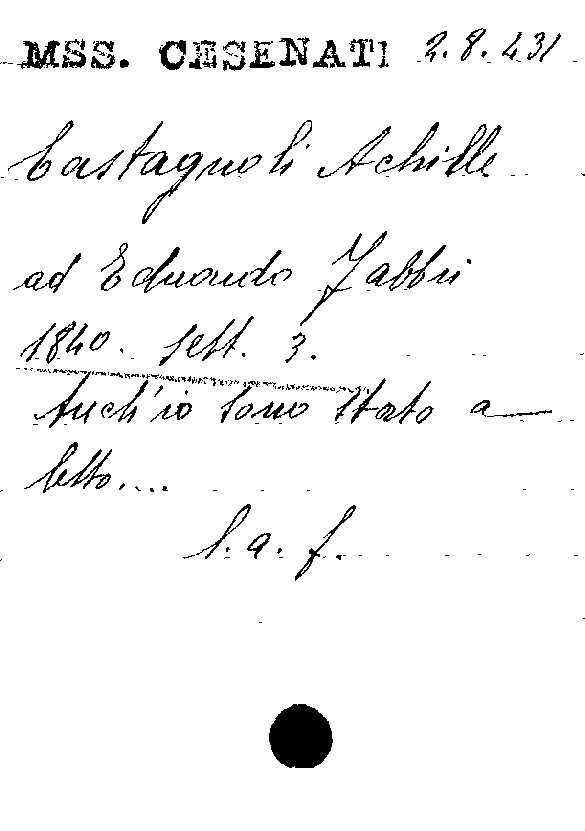 MSS. CESENATI 2.8.431
Castagnoli Achille
ad Eduardo Fabbri
1840. Sett. 3.
Anch'io sono stato a
letto....
l. a. f.